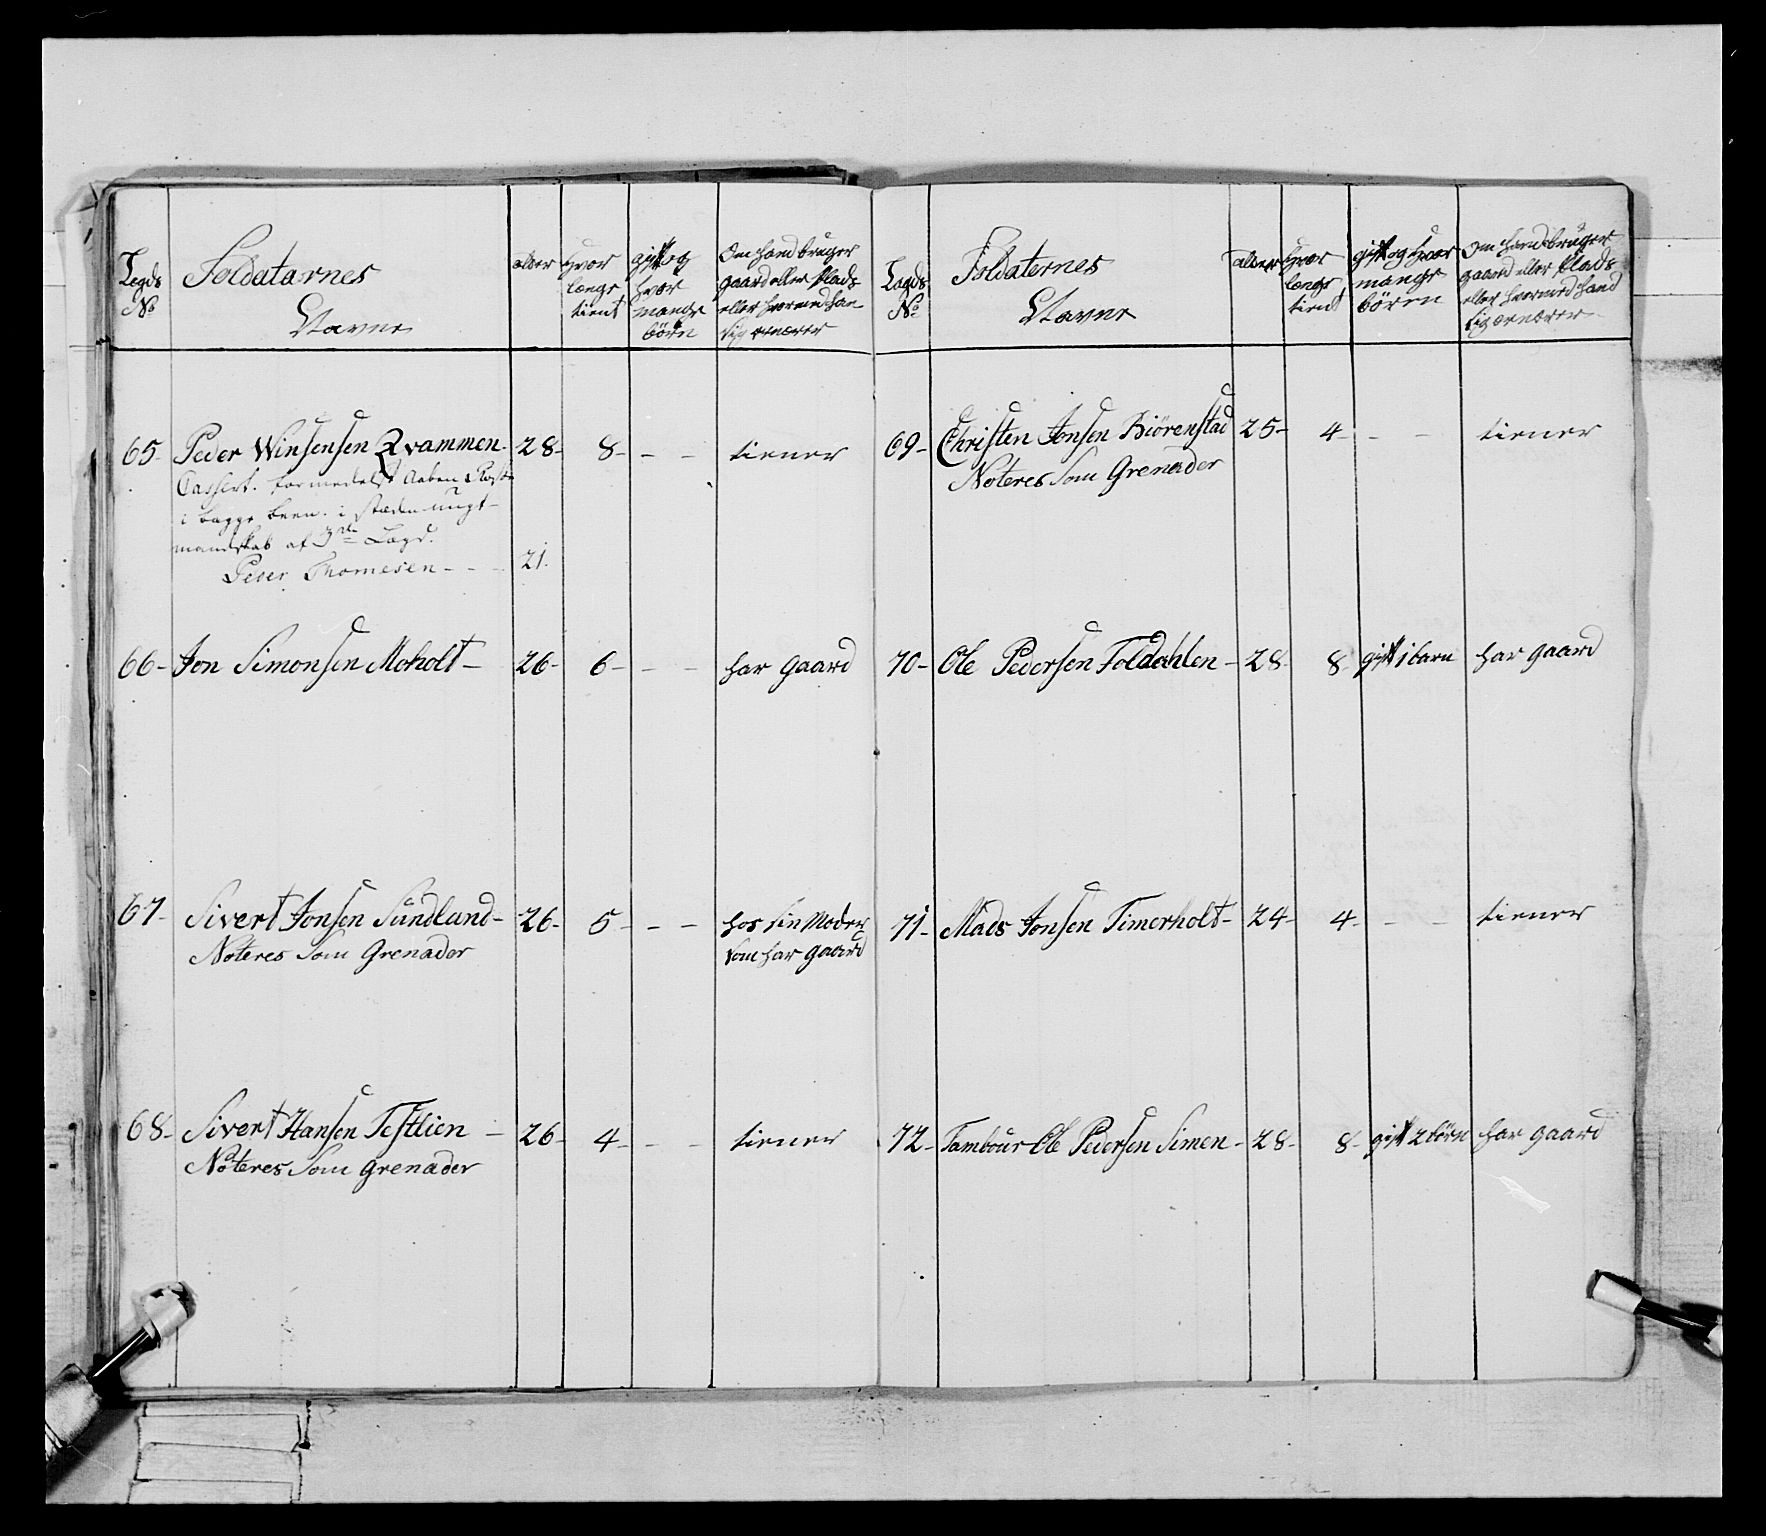 Legds
No
Soldatarnes
Navne
alder
hvor
længe
tient
gift og
hvor
mange
börn
Om hand bruger
gaard eller Plads
eller hvormed han
sig ernærer
65 Peder Winsensen Qvammen 28 8 - - tiener
Cassert. formedelst Aaben
i begge been. i stæden ungt
mandskab af Lægd.
Peder Thomesen - - - 21.
66 Jon Simonsen Moholt 26 6 - - har gaard
67 Sivert Jonsen Sundland 26 5 - - hos sin Moder
Noteres Som Grenader som har gaard
68 Sivert Hansen Testlien 26 4 - - tiener
Noteres Som Grenader
Legds
No
Soldaternes
Navne
alder
hvor
længe
tient
gift og hvor
mange
börn
Om hand bruger
gaard eller Plads
eller hvormed hand
sig ernærer
69 Christen Jonsen Biörenstad 25 4 - - tiener
Noteres Som Grenader
70 Ole Pedersen Foldahlen 28 8 gift 1 barn har gaard
71 Mads Jonsen Timerholt 24 4 - - tiener
72 Tambour Ole Pedersen Simen 28 8 gift 2 börn har gaard